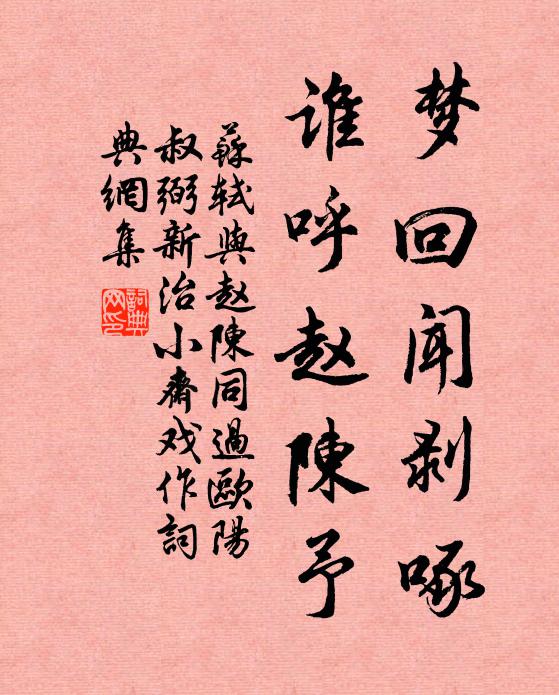 梦回闻剥啄
谁呼赵陳予
蘇軾與赵陳同過歐陽
叔弼新治小齋戏作詞
典網集
詞典网印